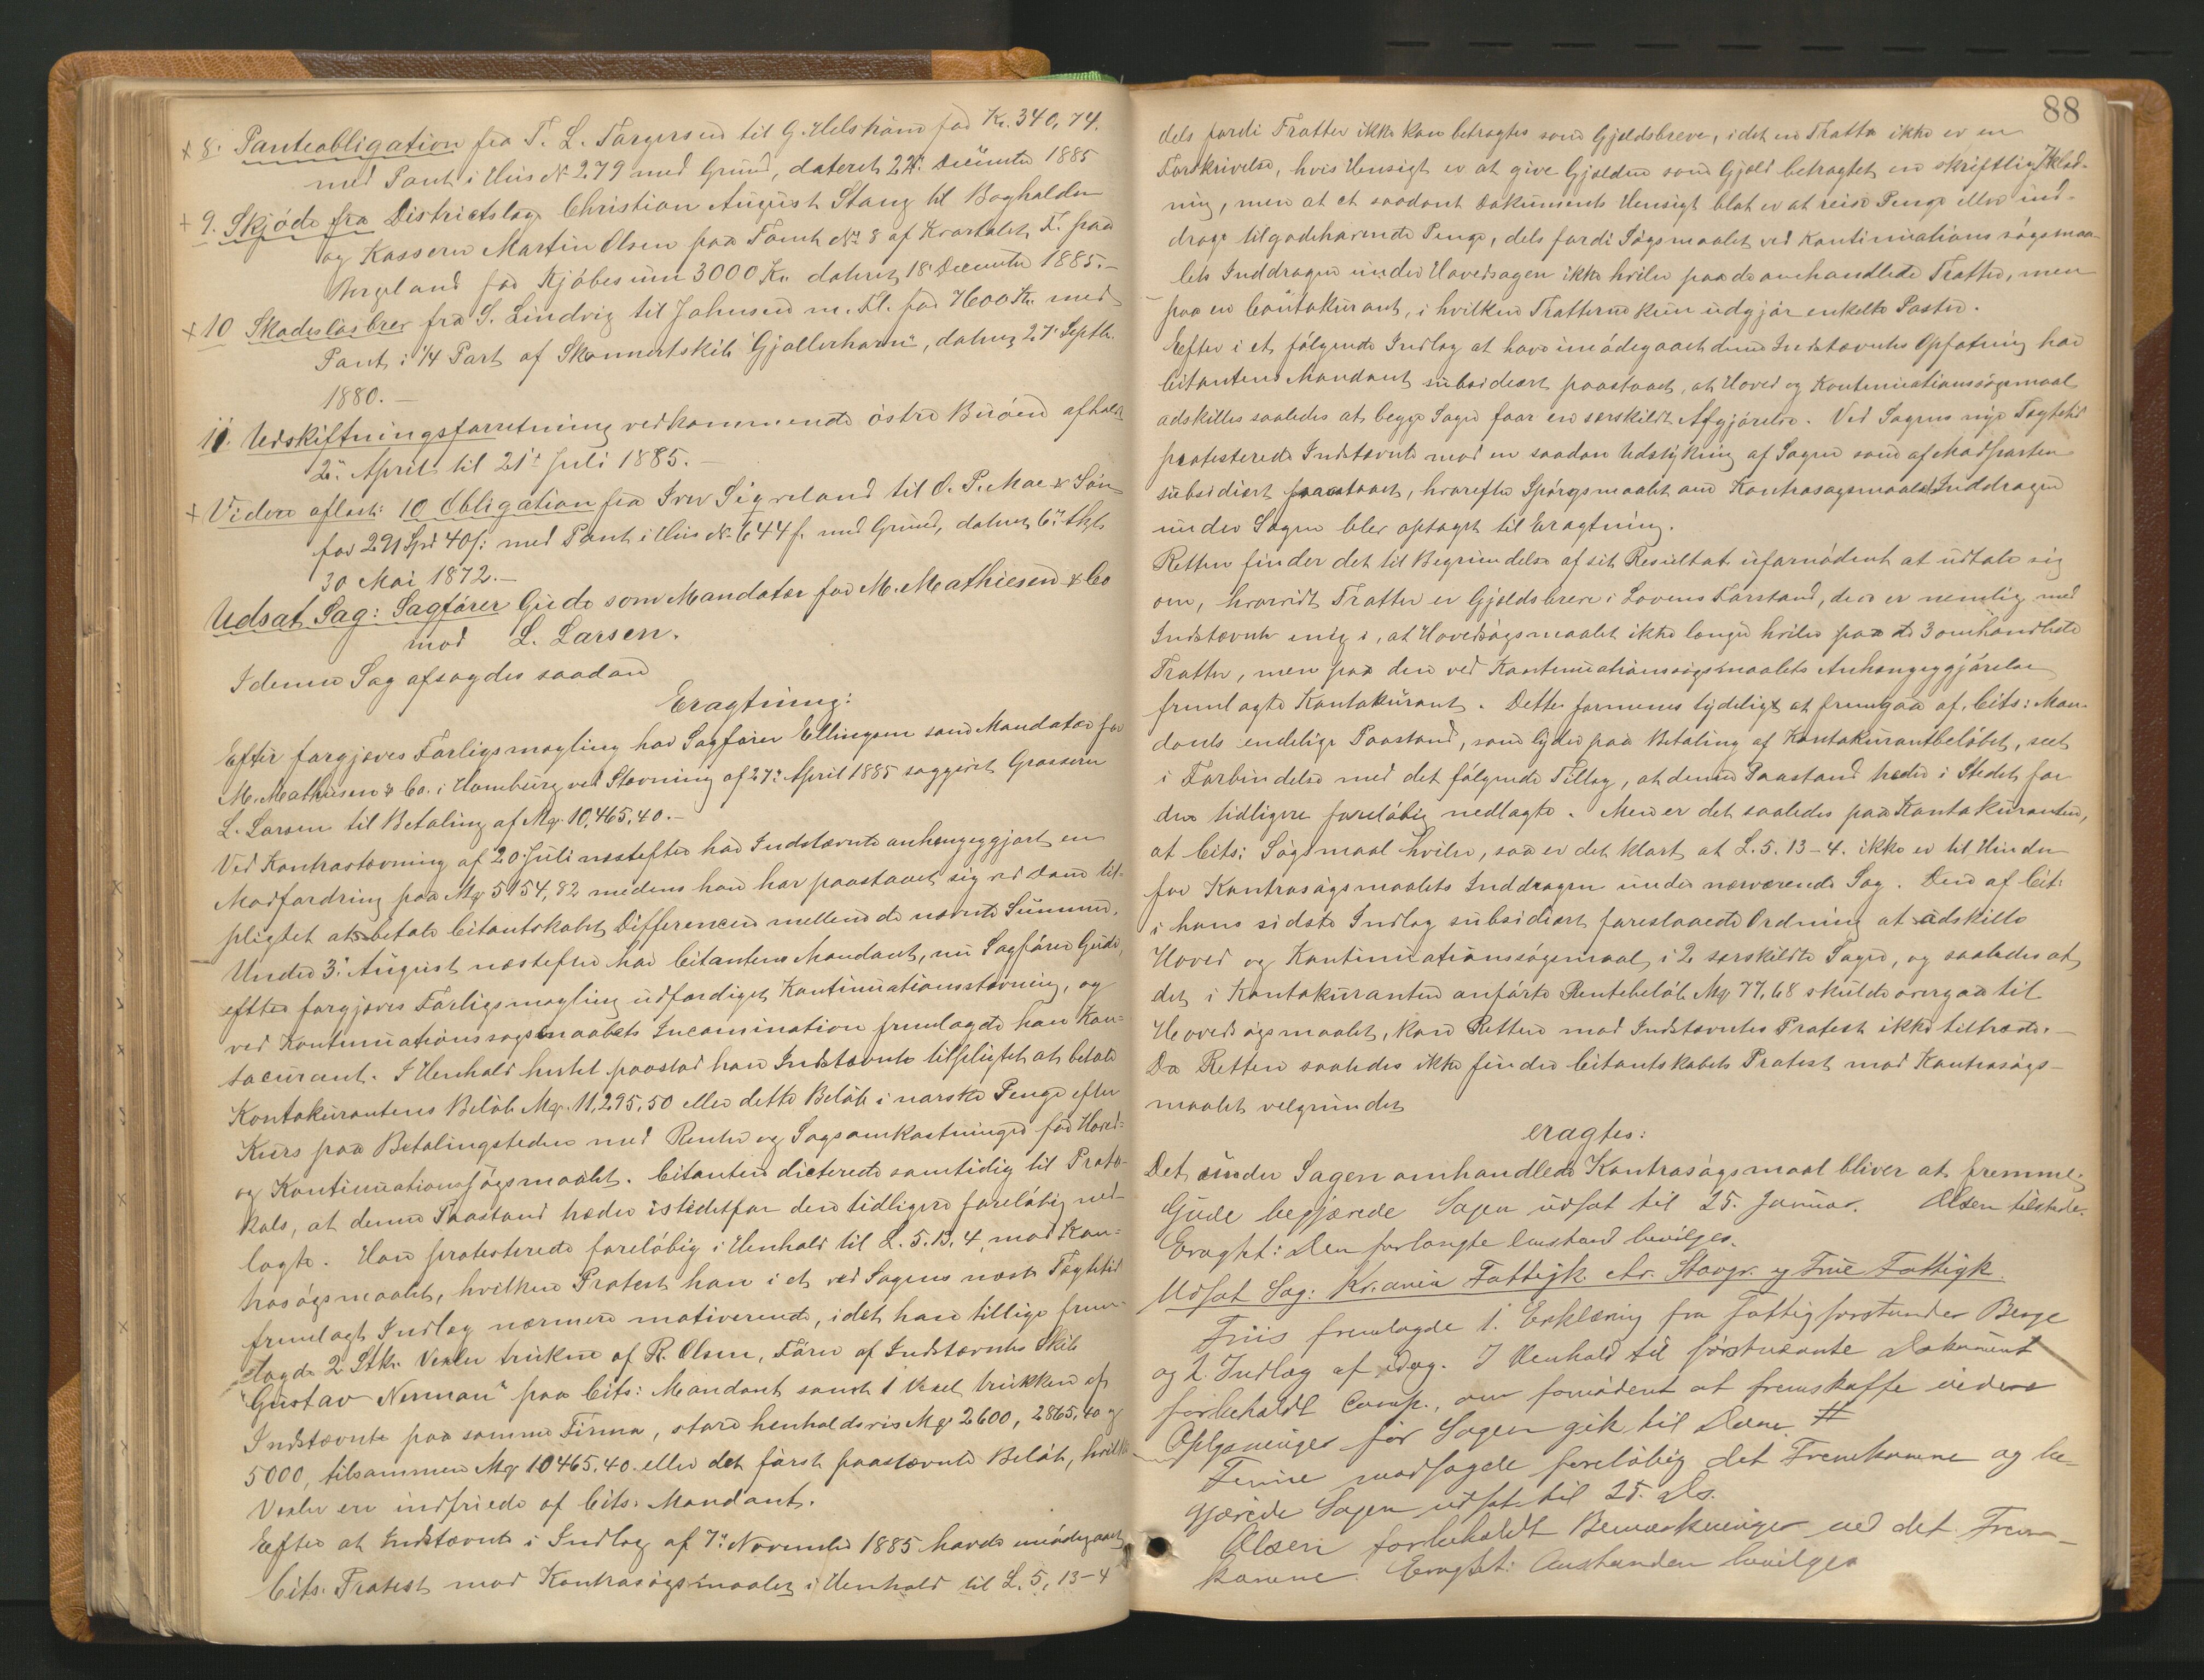 + 8. Panteobligation fra T. L. Torgersen til G. Helstrøm for Kr. 340,74.
med Pant i Huis No 279 med Grund, dateret 22. December 1885
+ 9. Skjöde fra Districtslæge Christian August Stang til Bogholder
og Kasserer Martin Olsen paa Tomt No 8 af Kvartalet F. paa
for Kjöbesum 3000 Kr. dateret 18. December 1885.—
+ 10 Skadeslösbrev fra S. Lindvig til Johnsen m. Fl. for Kr. med
Pant i 1/4 Part af Skonnertskib "Gjallerhorn", dateret 27. Septbr.
1880.—
11. Udskiftningsforretning vedkommende östre Buöen afholdt
2. April til 21de Juli 1885.—
+ Videre aflæst: 10 Obligation fra Iver Sigveland til O. P. Moe & Sön
for 291 Spd 40 s: med Pant i Huis No 644 f. med Grund, dateret 6.
30 Mai 1872.—
Udsat Sag: Sagförer Gude som Mandatar for M. Mathiesen & Co
mod L. Larsen.
I denne Sag afsagdes saadan
Eragtning:
Efter forgjæves Forligsmægling har Sagförer Ellingsen som Mandatar for
M. Mathiesen & Co. i Hamburg ved Stævning af 27. April 1885 saggivet Grosserer
L. Larsen til Betaling af Mq. 10,465,40.—
Ved Kontrastævning af 20 Juli næstefter har Indstævnte anhængiggjort en
Modfordring paa Mq 5154,82 medens han har paastaaet sig ved Dom til-
pligtet at betale Citantskabet Differencen mellem de nævnte Summer.
Under 3. August næstefter har Citantens Mandant, nu Sagförer Gude,
efter forgjæves Forligsmægling udfærdiget Kontinuationsstævning, og
ved Kontinuationssögsmaalets Incamination fremlagde han Kon-
tocurant. I Henhold hertil paastod han Indstævnte tilpligtet at betale
Kontokurantens Belöb Mq. 11,295,50 eller dette Belöb i norske Penge efter
Kurs paa Betalingstiden med Renter og Sagsomkostninger for Hoved-
og Kontinuationssögsmaalet. Citanten dicterede samtidig til Proto-
kols, at denne Paastand træder istedetfor den tidligere foreløbig ned-
lagte. Han protesterede foreløbig i Henhold til L. 5. 13. 4, mod Kon-
trasögsmaalet, hvilken Protest han i et ved Sagens næste Tægtetid
fremlagt Indlæg nærmere motiverende, idet han tillige frem-
lagde 2 Stk. Vexler trukne af R. Olsen, Förer af Indstævntes Skib
"Gustav Nerman" paa Cits: Mandant samt 1 Vexel trukken af
Indstævnte paa samme Firma, store henholdsvis Mq 2600, 2865,40 og
5000, tilsammen Mq 10465,40 eller det först paastævnte Belöb, hvilke
Vexler er indfriede af Cits: Mandant.
Efter at Indstævnte i Indlæg af 7. November 1885 havde imödegaaet
Cits. Protest mod Kontrasögsmaalet i Henhold til L. 5, 13–4
88
dels fordi Tratter ikke kan betragtes som Gjældsbreve, idet en Tratte ikke er en
Forskrivelse, hvis Hensigt er at give Gjælden som Gjæld betragtet en skriftlig Iklæd-
ning, men at et saadant Dokuments Hensigt blot er at reise Penge eller ind-
drage tilgodehavende Penge, dels fordi Sögsmaalet ved Kontinuationssögsmaa-
lets Inddragen under Hovedsagen ikke hviler paa de omhandlede Tratter, men
paa en Contokurant, i hvilken Tratterne kun udgjör enkelte Poster.
Efter i et fölgende Indlæg at have imödegaaet denne Indstævntes Opfatning har
Citantens Mandant subsidiært paastaaet, at Hoved og Kontinuationssögsmaal
adskilles saaledes at begge Sager faar en særskildt Afgjörelse. Ved Sagens nye Tægtetid
protesterede Indstævnte mod en saadan Udstykning af Sagen som af Modparten
subsidiært foreslaaet, hvorefter Spörgsmaalet om Kontrasögsmaalets Inddragen
under Sagen blev optaget til Eragtning.
Retten finder det til Begrundelse af sit Resultat ufornödent at udtale sig
om, hvorvidt Tratter er Gjældsbreve i Lovens Forstand, den er nemlig med
Indstævnte enig i, at Hovedsögsmaalet ikke længer hviler paa de 3 omhandlede
Tratter, men paa den ved Kontinuationssögsmaalets Anhængiggjörelse
fremlagte Kontokurant. Dette formenes tydeligt at fremgaa af Cits: Man-
dants endelige Paastand, som lyder paa Betaling af Kontokurantbelöbet, seet
i Forbindelse med det fölgende Tillæg, at denne Paastand træder i Stedet for
den tidligere foreløbig nedlagte. Men er det saaledes paa Kontokuranten,
at Cits: Sögsmaal hviler, saa er det klart at L. 5. 13–4. ikke er til Hinder
for Kontrasögsmaalets Inddragen under nærværende Sag. Den af Cit:
i hans sidste Indlæg subsidiært foreslaaede Ordning at adskille
Hoved og Kontinuationssögsmaal i 2 særskildte Sager, og saaledes at
det i Kontokuranten anförte Rentebelöb Mq 77,68 skulde overgaa til
Hovedsögsmaalet, kan Retten mod Indstævntes Protest ikke tiltræde.—
Da Retten saaledes ikke finder Citantskabets Protest mod Kontrasögs-
maalet velgrundet
eragtes:
Det under Sagen omhandlede Kontrasögsmaal bliver at fremme.
Gude begjærede Sagen udsat til 25. Januar. Olsen tilstede.
Eragtet: Den forlangte Anstand bevilges.
Udsat Sag: Kr.ania Fattigk. ctr. Stavgr. og Tune Fattigk.
Friis fremlagde 1. Erklæring fra Fattigforstander Berge
og 2. Indlæg af idag. I Henhold til förstnævnte Dokument
forbeholdt Comp., om fornödent at fremskaffe videre
Oplysninger för Sagen gik til Dom. #
modsagde foreløbig det Fremkomne og be-
gjærede Sagen udsat til 25. Ds.
Olsen forbeholdt Bemærkninger ved det Frem-
komne. Eragtet: Anstanden bevilges